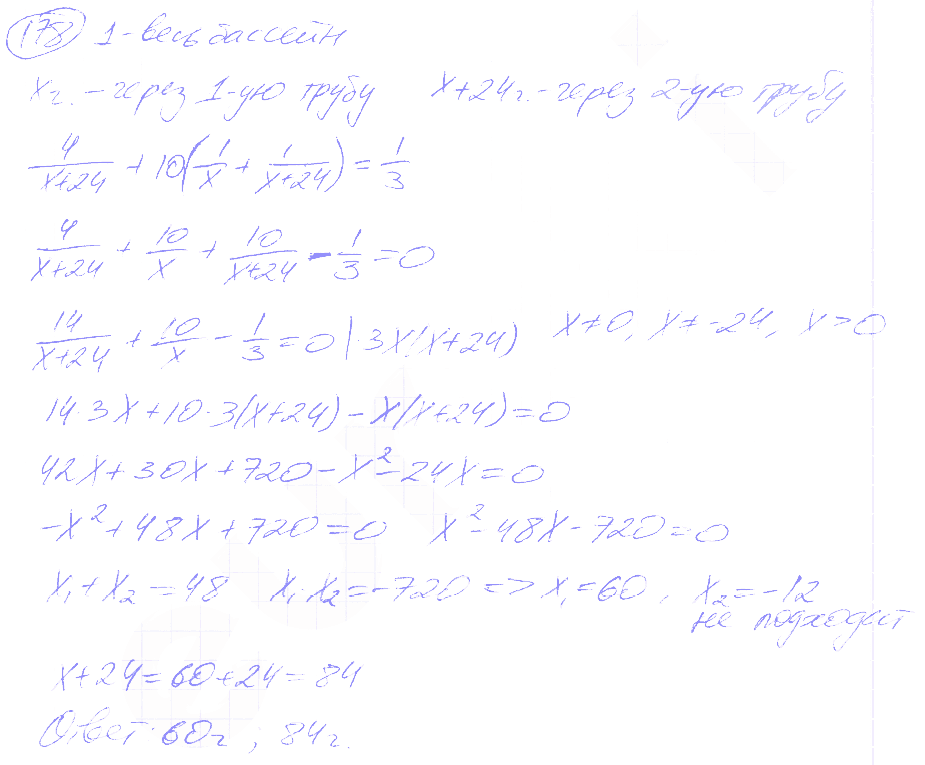 178 1-весь бассейн
Xч. – через 1-ую трубу X+24ч. – через 2-ую трубу
4/(X+24) + 10(1/X + 1/(X+24)) = 1/3
4/(X+24) + 10/X + 10/(X+24) - 1/3 = 0
14/(X+24) + 10/X - 1/3 = 0 |·3X(X+24) X≠0, X≠-24, X>0
14·3X+10·3(X+24)-X(X+24)=0
42X+30X+720-X²-24X=0
-X²+48X+720=0 X²-48X-720=0
X₁+X₂=48 X₁·X₂=-720 => X₁=60, X₂=-12
не подходит
X+24=60+24=84
Ответ: 60ч; 84ч.